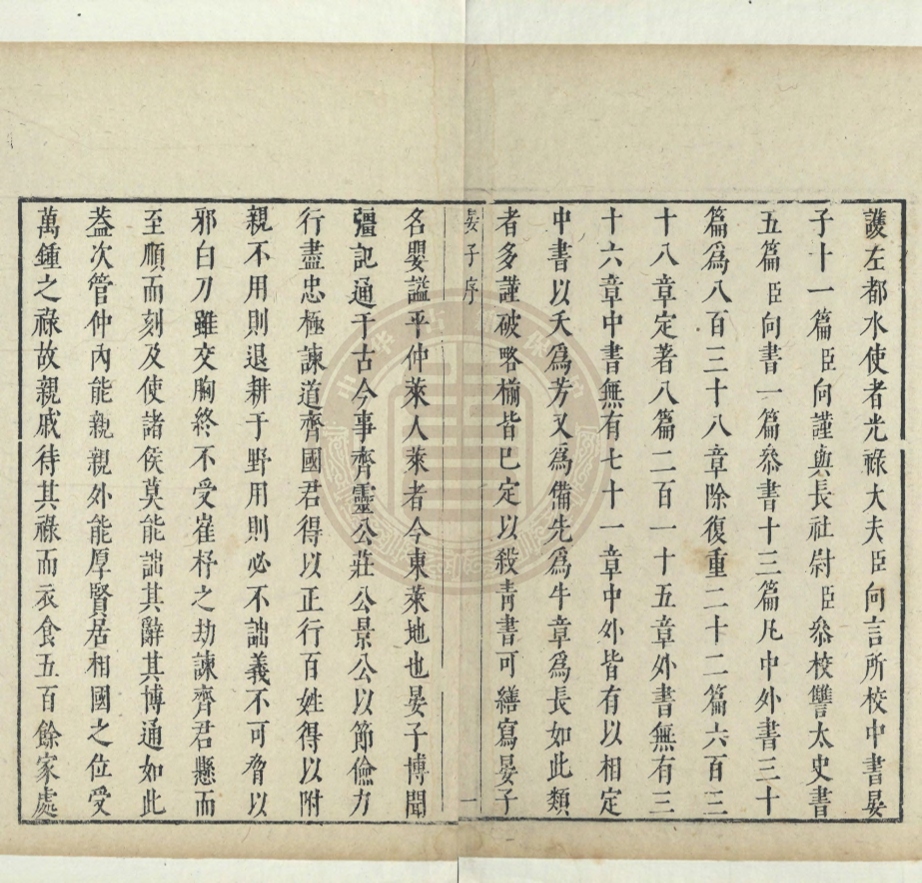 護左都水使者光祿大夫臣向言所校中書晏
子十一篇臣向謹與長社尉臣叅校讐太史書
五篇臣向書一篇叅書十三篇凡中外書三十
篇爲八百三十八章除復重二十二篇六百三
十八章定著八篇二百一十五章外書無有三
十六章中書無有七十一章中外皆有以相定
中書以夭爲芳又爲備先爲牛章爲長如此類
者多謹破略椾皆已定以殺靑書可繕寫晏子
晏子序
一
名嬰謚平仲萊人萊者今東萊地也晏子博聞
彊記通于古今事齊靈公莊公景公以節儉力
行盡忠極諫道齊國君得以正行百姓得以附
親不用則退耕于野用則必不詘義不可脅以
邪白刀雖交胸終不受崔杼之劫諫齊君懸而
至順而刻及使諸侯莫能詘其辭其博通如此
葢次管仲內能親親外能厚賢居相國之位受
萬鍾之祿故親戚待其祿而衣食五百餘家處